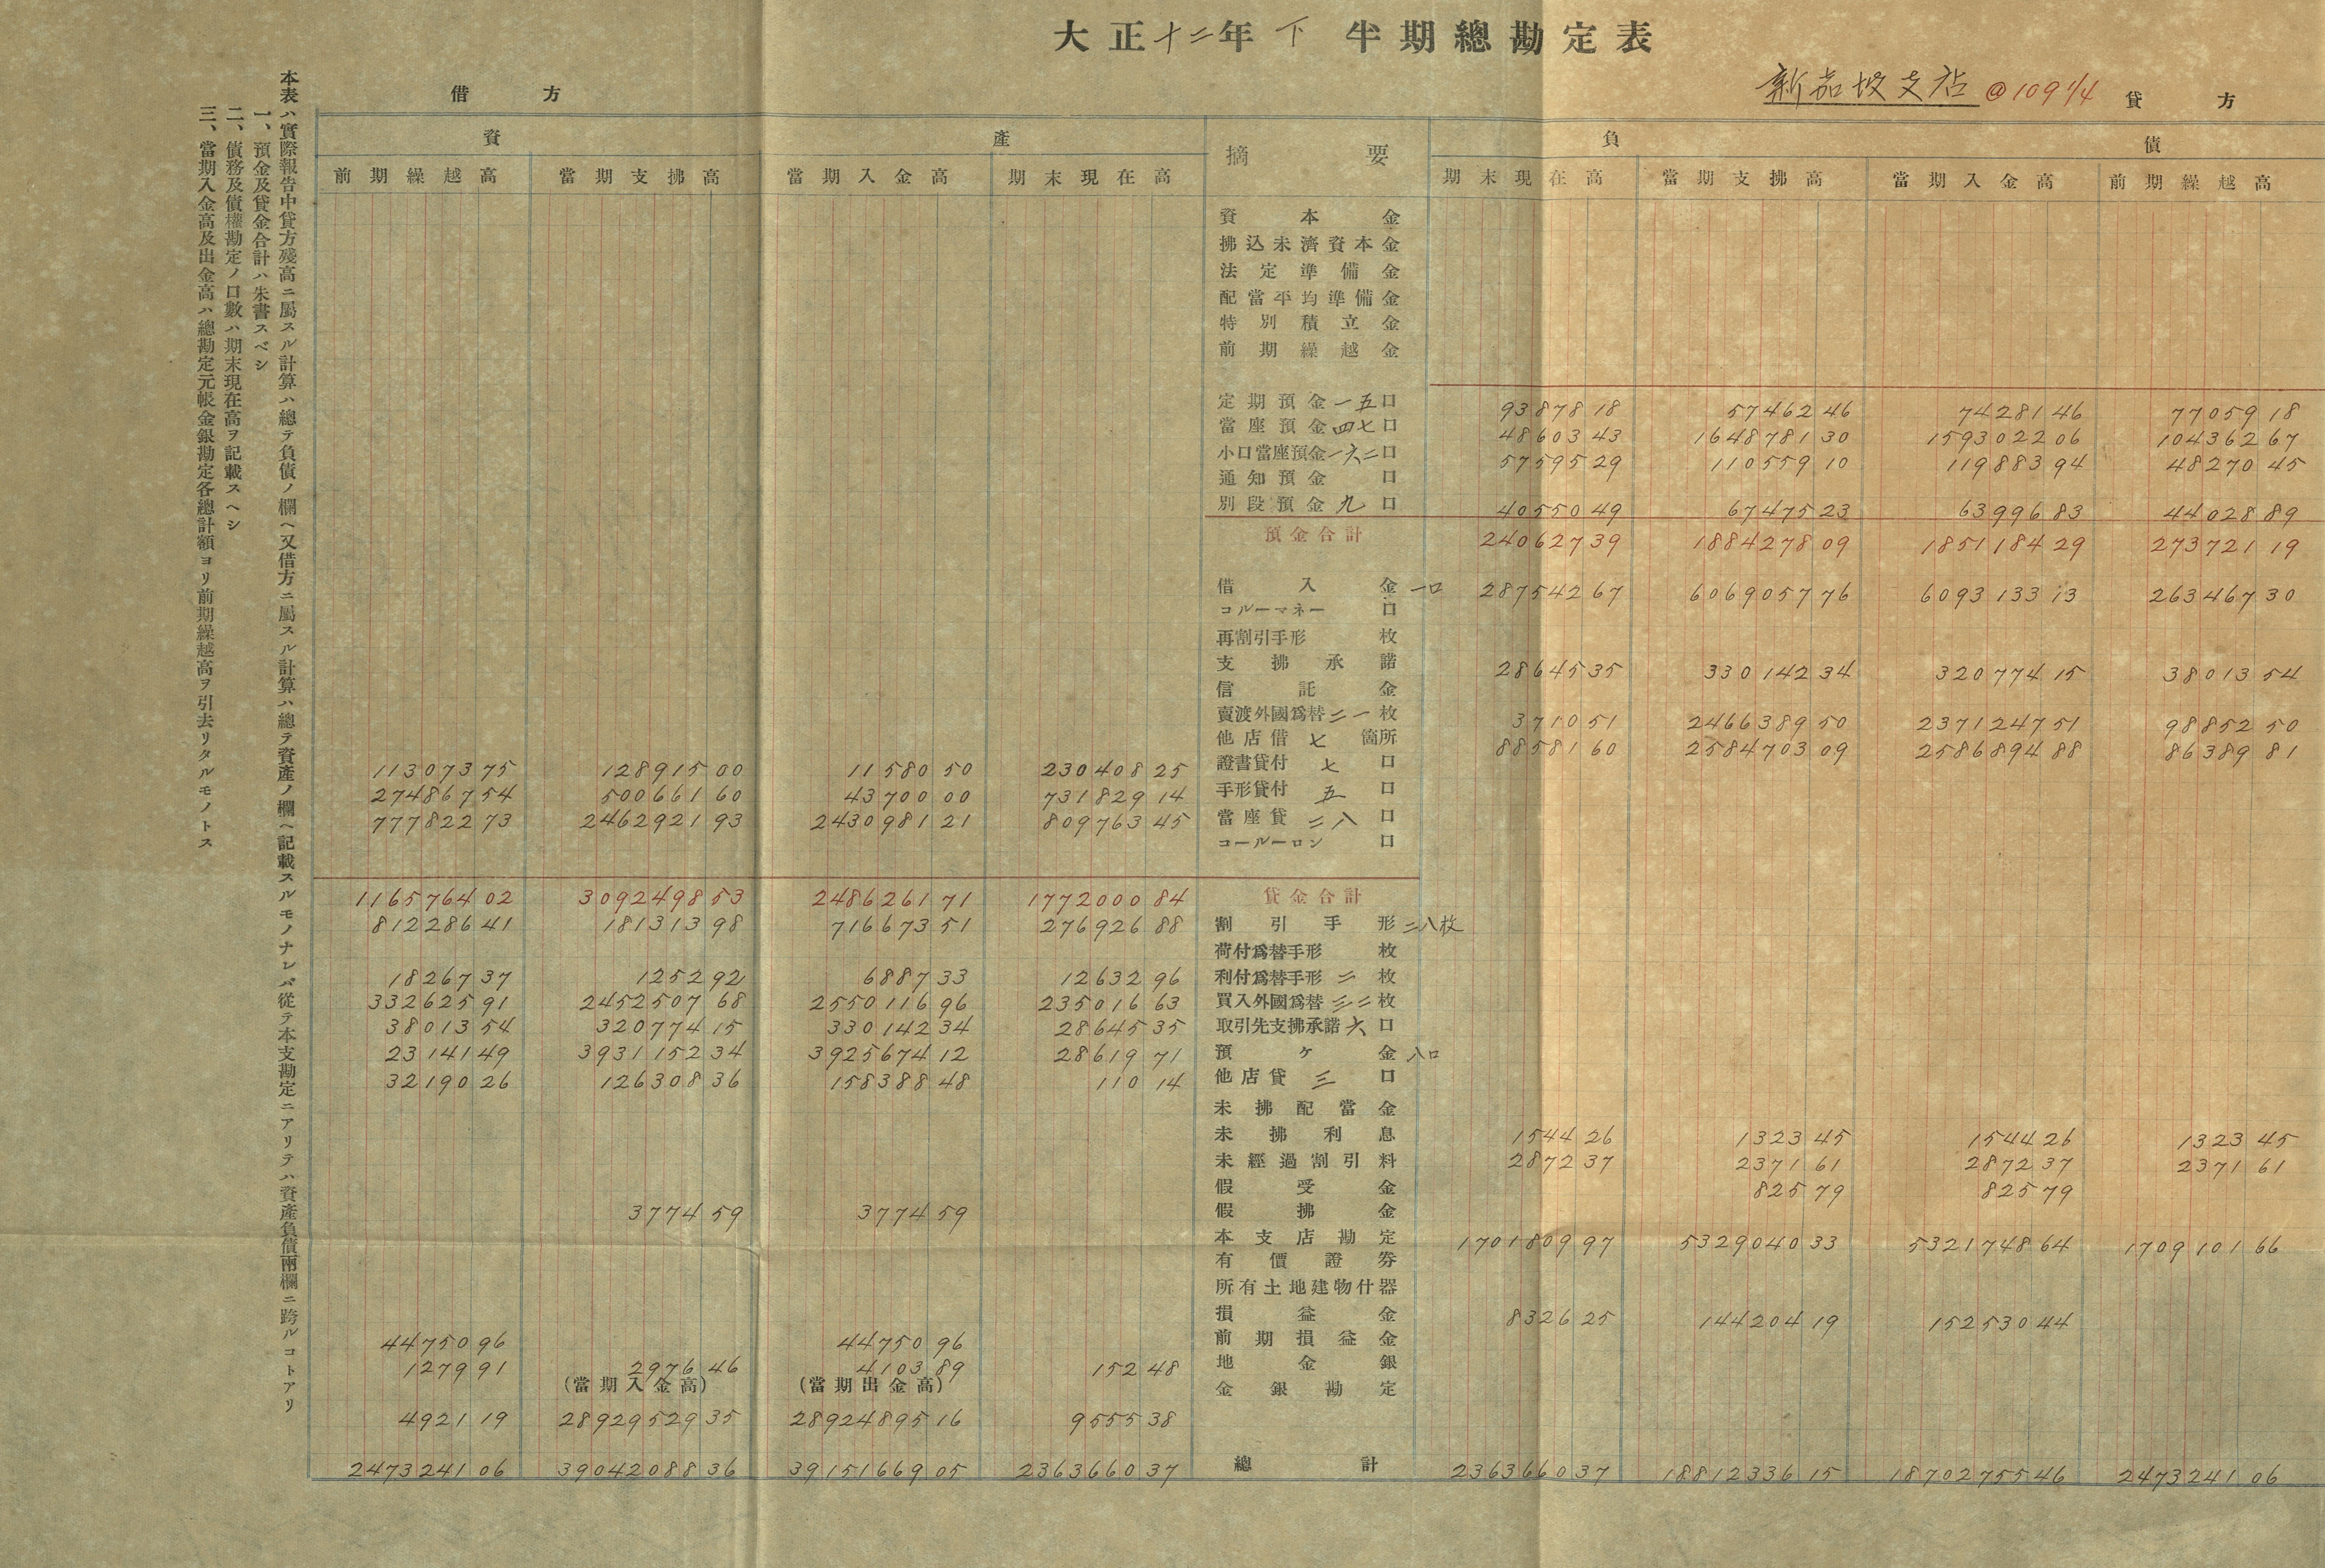 大正十二年下半期總勘定表
新嘉坡支店 @109 1/4
借方 貸方
資產 摘要 負債
前期繰越高 當期支拂高 當期入金高 期末現在高 期末現在高 當期支拂高 當期入金高 前期繰越高
資本金
拂込未濟資本金
法定準備金
配當平均準備金
特別積立金
前期繰越金
定期預金 一五口 93878 18 57462 46 74281 46 77059 18
當座預金 四七口 48603 43 1648781 30 1593022 06 104362 67
小口當座預金 一六二口 57595 29 110559 10 119883 94 48270 45
通知預金 口
別段預金 九口 40550 49 67475 23 63996 83 44028 89
預金合計 240627 39 1884278 09 1851184 29 273721 19
借入金 一口 287542 67 6069057 76 6093133 13 263467 30
コルーマネー 口
再割引手形 枚
支拂承諾 28645 35 330142 34 320774 15 38013 54
信託金
賣渡外國爲替 二一枚 3710 51 2466389 50 2371247 51 98852 50
他店借 七箇所 88581 60 2584703 09 2586894 88 86389 81
113073 75 128915 00 11580 50 230408 25 證書貸付 七口
274867 54 500661 60 43700 00 731829 14 手形貸付 五口
777822 73 2462921 93 2430981 21 809763 45 當座貸 二八口
コールーロン 口
1165764 02 3092498 53 2486261 71 1772000 84 貸金合計
812286 41 181313 98 716673 51 276926 88 割引手形 二八枚
荷付爲替手形 枚
18267 37 1252 92 6887 33 12632 96 利付爲替手形 二枚
332625 91 2452507 68 2550116 96 235016 63 買入外國爲替 三二枚
38013 54 320774 15 330142 34 28645 35 取引先支拂承諾 六口
23141 49 3931152 34 3925674 12 28619 71 預ヶ金 八口
32190 26 126308 36 158388 48 110 14 他店貸 三口
未拂配當金
未拂利息 1544 26 1323 45 1544 26 1323 45
未經過割引料 2872 37 2371 61 2872 37 2371 61
假受金 825 79 825 79
3774 59 3774 59 假拂金
本支店勘定 1701809 97 5329040 33 5321748 64 1709101 66
有價證券
所有土地建物什器
損益金 8326 25 144204 19 152530 44
44750 96 44750 96 前期損益金
1279 91 2976 46 4103 89 152 48 地金銀
(當期入金高) (當期出金高) 金銀勘定
4921 19 28929529 35 28924895 16 9555 38
2473241 06 39042088 36 39151669 05 2363660 37 總計 2363660 37 18812336 15 18702755 46 2473241 06
本表ハ實際報告中貸方殘高ニ屬スル計算ハ總テ負債ノ欄ヘ又借方ニ屬スル計算ハ總テ資產ノ欄ヘ記載スルモノナレバ從テ本支勘定ニアリテハ資產負債兩欄ニ跨ルコトアリ
一、預金及貸金合計ハ朱書スベシ
二、債務及債權勘定ノ口數ハ期末現在高ヲ記載スヘシ
三、當期入金高及出金高ハ總勘定元帳金銀勘定各總計額ヨリ前期繰越高ヲ引去リタルモノトス